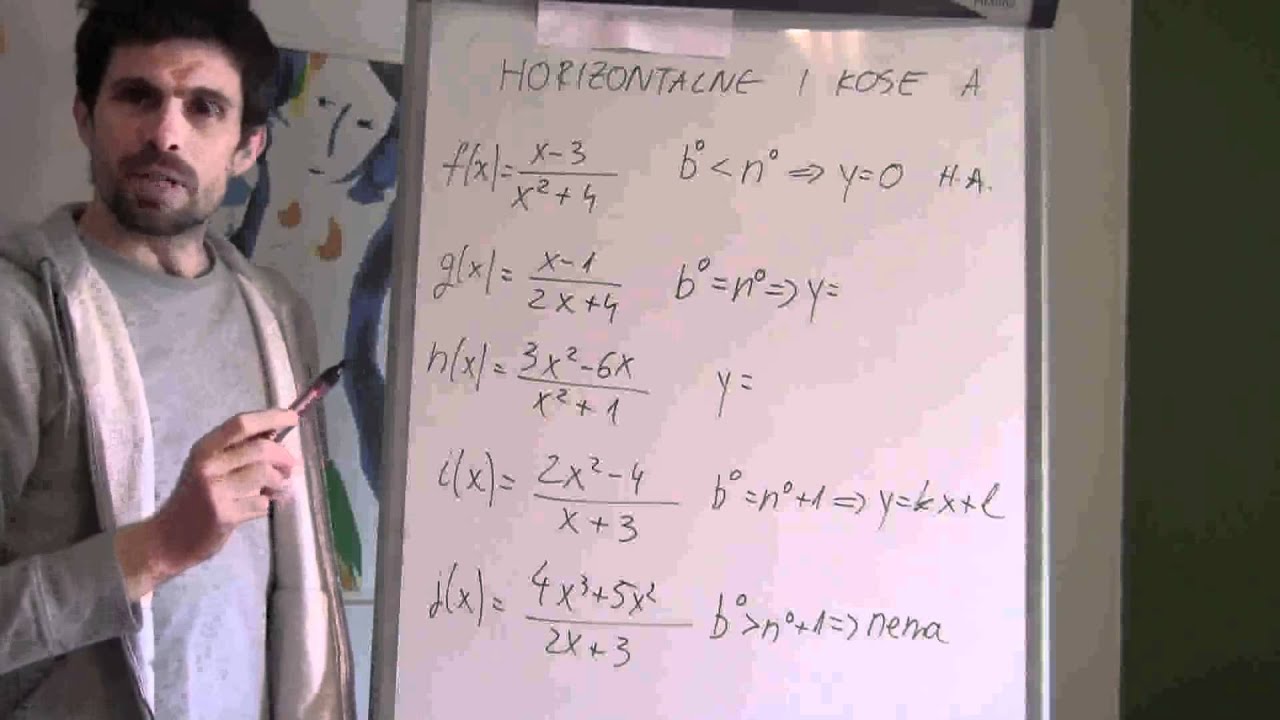 HORIZONTALNE I KOSE A
f(x)= x-3 / x²+4 b⁰ < n⁰ ⇒ y=0 H.A.
g(x)= x-1 / 2x+4 b⁰=n⁰⇒ y=
h(x)= 3x²-6x / x²+1 y=
i(x)= 2x²-4 / x+3 b⁰=n⁰+1⇒ y=kx+l
j(x)= 4x³+5x² / 2x+3 b⁰>n⁰+1⇒ nema